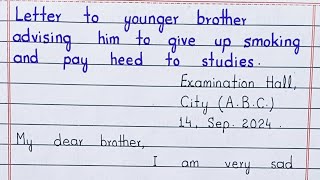 Letter to younger brother
advising him to give up smoking
and pay heed to studies.
Examination Hall,
City (A.B.C.)
14, Sep. 2024.
My dear brother,
I am very sad